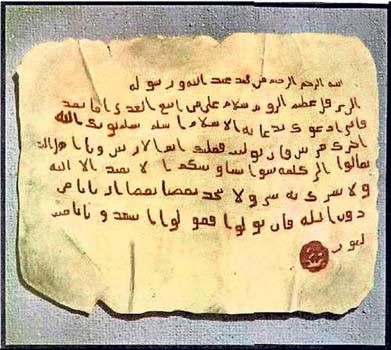 بسم الله الرحمن الرحيم من محمد عبد الله ورسوله
الى هرقل عظيم الروم سلام على من اتبع الهدى اما بعد
فاني ادعوك بدعاية الاسلام اسلم تسلم يوتك الله
اجرك مرتين فان توليت فعليك اثم ويا اهل
تعالوا الى كلمة سوا بيننا وبينكم الا نعبد الا الله
ولا نشرك به ولا يتخذ بعضنا بعضا اربابا من
دون الله فان تولوا فقولوا اشهدوا بانا مسلمون